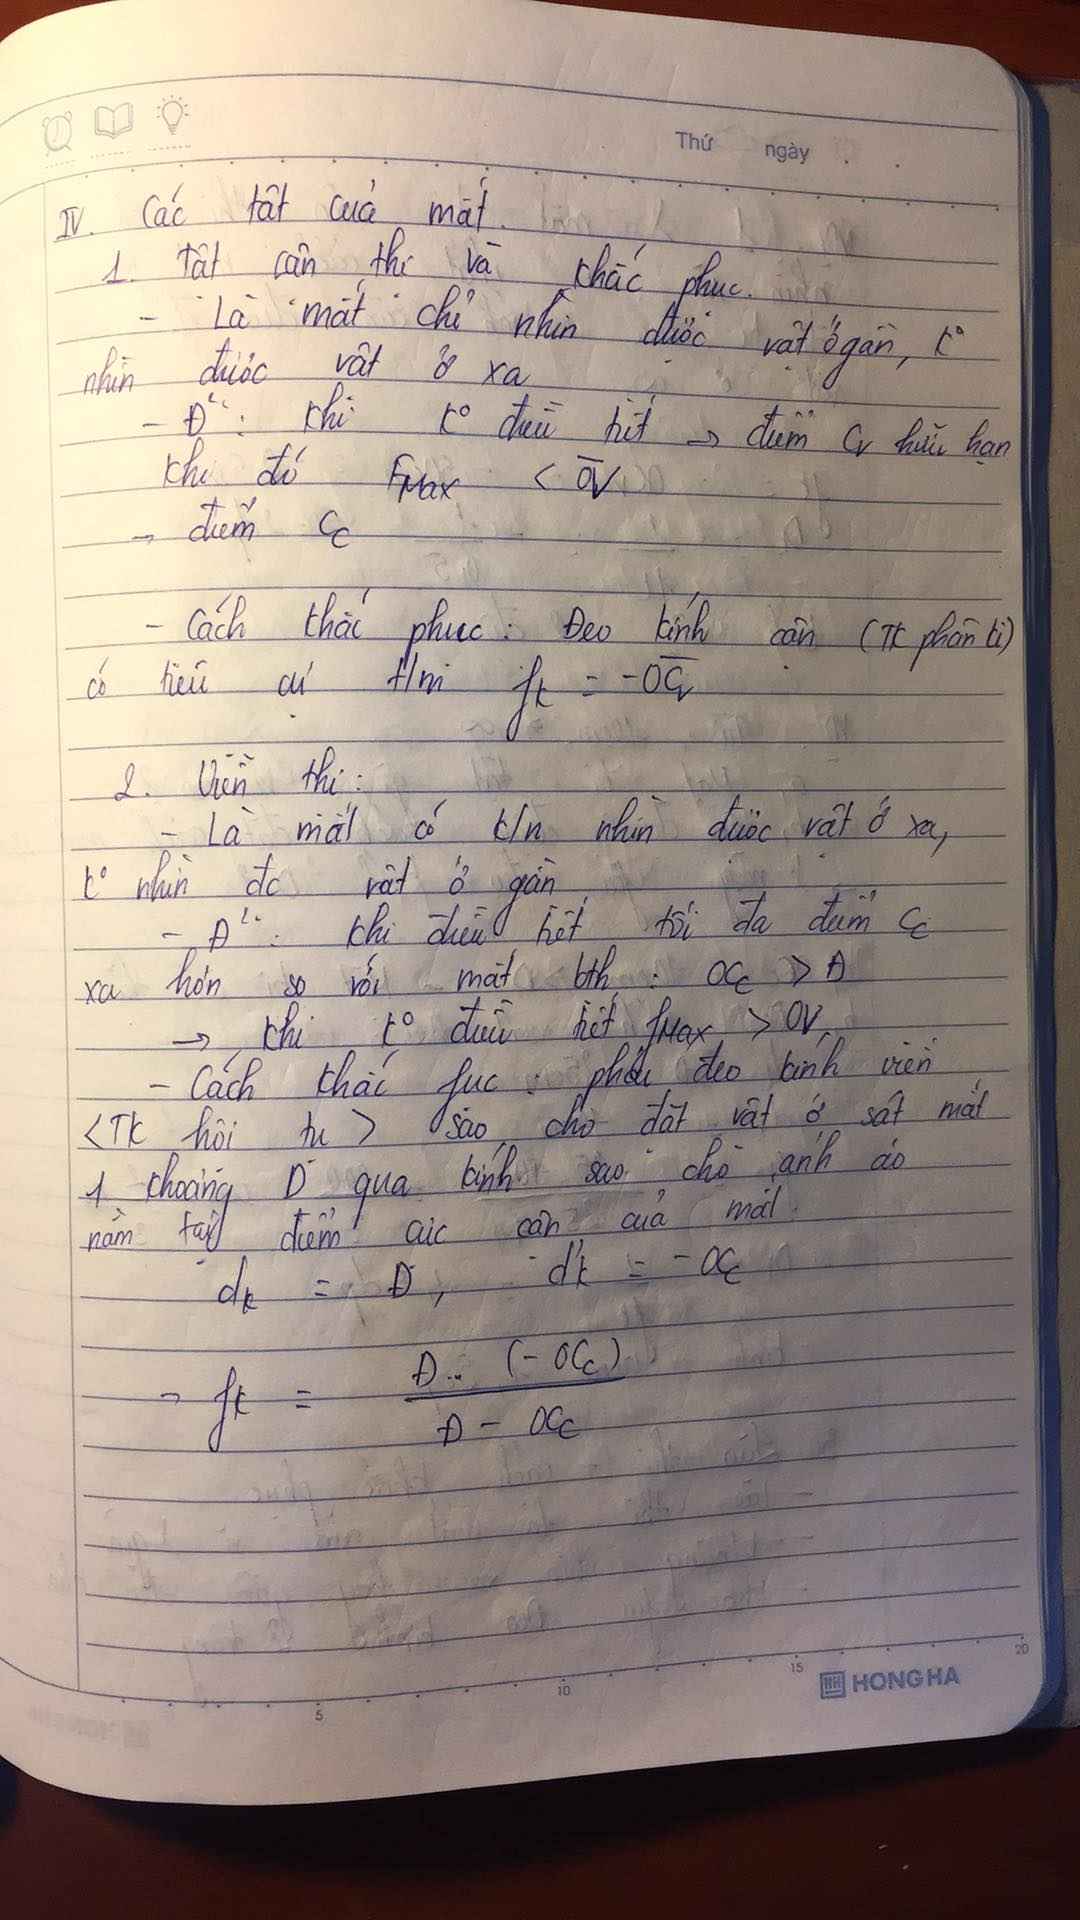 Thứ ngày
IV. Các tật của mắt.
1. Tật cận thị và khắc phục.
- Là mắt chỉ nhìn được vật ở gần, k°
nhìn được vật ở xa
- Đ²: khi k° điều tiết → điểm Cv hữu hạn
khi đó FMax < OV
→ điểm Cc
- Cách khắc phục: Đeo kính cận (TK phân kì)
có tiêu cự t/m fk = -OCv
2. Viễn thị:
- Là mắt có k/n nhìn được vật ở xa,
k° nhìn đc vật ở gần
- Đ²: khi điều tiết tối đa điểm Cc
xa hơn so với mắt bth: OCc > Đ
→ khi k° điều tiết fMax > OV
- Cách khắc fục: phải đeo kính viễn
<TK hội tụ> sao cho đặt vật ở sát mắt
1 khoảng Đ qua kính sao cho ảnh ảo
nằm tại điểm cực cận của mắt.
dk = Đ, d'k = -OCc
→ fk = Đ.. (-OCc)
Đ - OCc
5 10 15 20
HH HONG HA